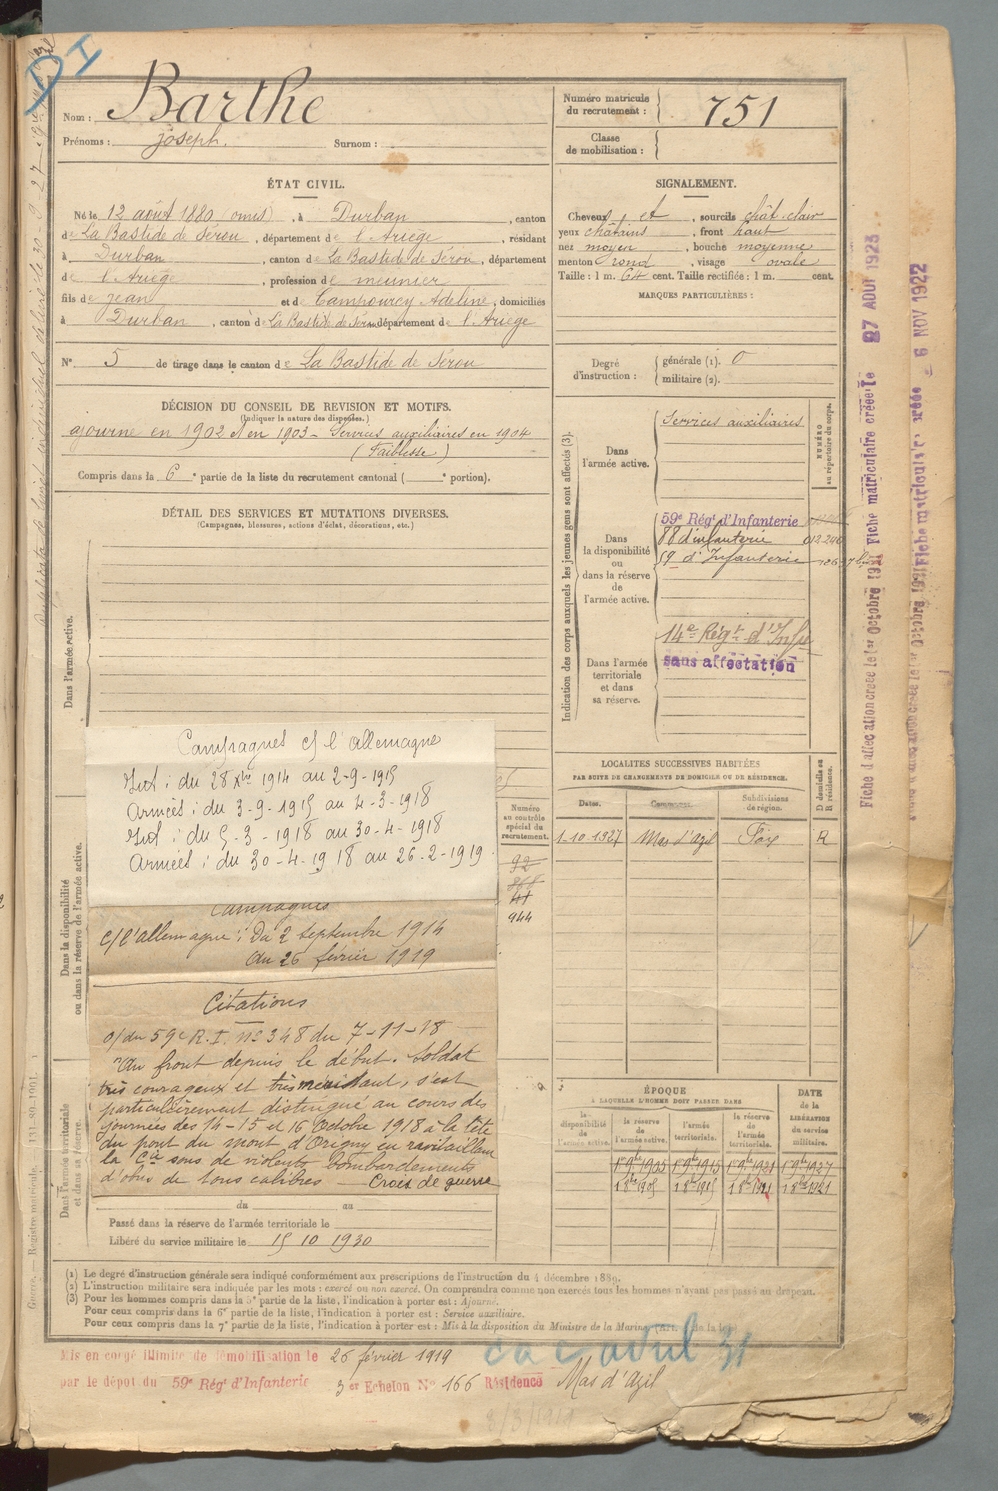 Nom : Barthe
Prénoms : joseph. Surnom :
Numéro matricule du recrutement : 751
Classe de mobilisation :
ÉTAT CIVIL.
Né le 12 août 1880 (omis), à Durban, canton
de La Bastide de Sérou, département de l'Ariège, résidant
à Durban, canton de La Bastide de Sérou, département
de l'Ariège, profession de meunier
fils de jean et de Campourcy Adeline, domiciliés
à Durban, canton de La Bastide de Sérou département de l'Ariège
N° 5 de tirage dans le canton de La Bastide de Sérou
DÉCISION DU CONSEIL DE REVISION ET MOTIFS.
(Indiquer la nature des dispenses.)
ajourné en 1902 et en 1903 - Services auxiliaires en 1904
(Faiblesse)
Compris dans la 6e partie de la liste du recrutement cantonal ( e portion).
DÉTAIL DES SERVICES ET MUTATIONS DIVERSES.
(Campagnes, blessures, actions d'éclat, décorations, etc.)
Dans l'armée active.
Campagnes c/ l'allemagne
Int : du 28 Xbre 1914 au 2-9-1915
Armées : du 3-9-1915 au 4-3-1918
Int : du 5-3-1918 au 30-4-1918
Armées : du 30-4-1918 au 26-2-1919
Dans la disponibilité ou dans la réserve de l'armée active.
Campagnes
c/ l'allemagne : Du 2 septembre 1914
au 26 février 1919
Citations
o/ du 59e R.I. N° 348 du 7-11-18
"Au front depuis le début. Soldat
très courageux et très méritant, s'est
particulièrement distingué au cours des
journées des 14-15 et 16 Octobre 1918 à la tête
du pont du mont d'Origny en ravitaillant
la Cie sous de violents bombardements
d'obus de tous calibres — Croix de guerre
Dans l'armée territoriale et dans sa réserve.
du au
Passé dans la réserve de l'armée territoriale le
Libéré du service militaire le 15 10 1930
SIGNALEMENT.
Cheveux et, sourcils chât clair
yeux châtains, front haut
nez moyen, bouche moyenne
menton rond, visage ovale
Taille : 1 m. 64 cent. Taille rectifiée : 1 m. cent.
MARQUES PARTICULIÈRES :
Degré d'instruction : générale (1). 0
militaire (2).
Indication des corps auxquels les jeunes gens sont affectés (3).
NUMÉRO au répertoire du corps.
Dans l'armée active.
Services auxiliaires
Dans la disponibilité ou dans la réserve de l'armée active.
59e Régt d'Infanterie
88 d'infanterie 012240
59 d'Infanterie
Dans l'armée territoriale et dans sa réserve.
14e Régt d'Infie
sans affectation
LOCALITES SUCCESSIVES HABITÉES
PAR SUITE DE CHANGEMENTS DE DOMICILE OU DE RÉSIDENCE.
Dates. Communes. Subdivisions de région. D domicile ou R résidence.
1-10-1927 Mas d'Azil Foix R
Numéro au contrôle spécial du recrutement.
92
868
41
944
ÉPOQUE
À LAQUELLE L'HOMME DOIT PASSER DANS
la disponibilité de l'armée active. la réserve de l'armée active. l'armée territoriale. la réserve de l'armée territoriale.
DATE de la LIBÉRATION du service militaire.
(1) Le degré d'instruction générale sera indiqué conformément aux prescriptions de l'instruction du 4 décembre 1889.
(2) L'instruction militaire sera indiquée par les mots : exercé ou non exercé. On comprendra comme non exercés tous les hommes n'ayant pas passé au drapeau.
(3) Pour les hommes compris dans la 5e partie de la liste, l'indication à porter est : Ajourné.
Pour ceux compris dans la 6e partie de la liste, l'indication à porter est : Service auxiliaire.
Pour ceux compris dans la 7e partie de la liste, l'indication à porter est : Mis à la disposition du Ministre de la Marine
Mis en congé illimité de démobilisation le 26 février 1919
par le dépôt du 59e Régt d'Infanterie 3er Echelon N° 166 Résidence Mas d'Azil
Fiche d'affectation créée le 1er Octobre 1921 Fiche matriculaire créée le 27 AOUT 1923
6 NOV 1922
Guerre. — Registre matricule.